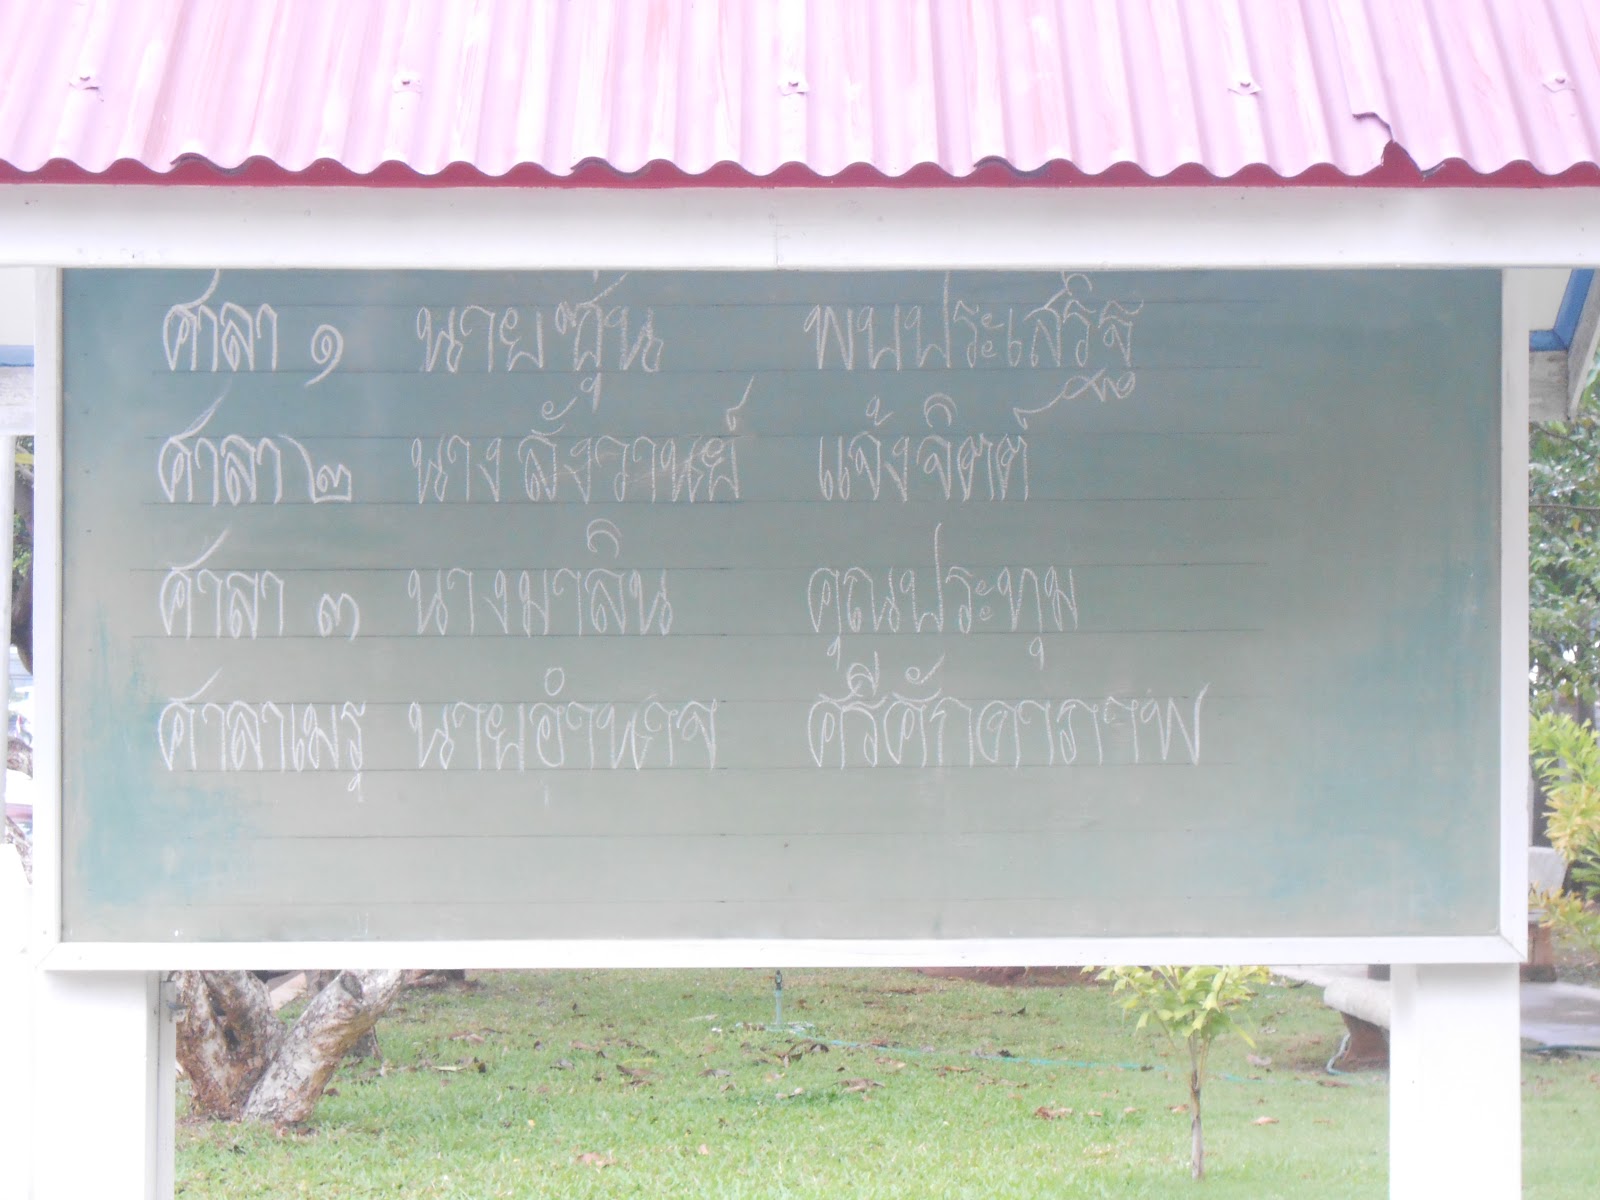 ศาลา ๑ นายซุ่น พบประเสริฐ
ศาลา ๒ นางสังวานย์ แจ้งจิตต์
ศาลา ๓ นางมาลิน คุณประทุม
ศาลาเมรุ นายอำนาจ ศรีศักดาราพ